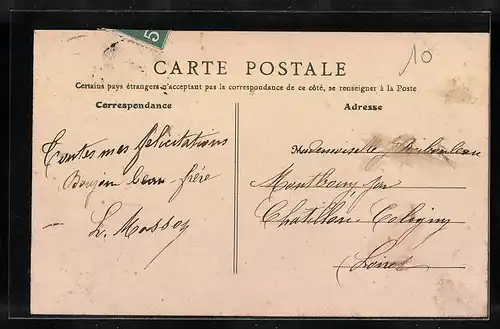 5
10
CARTE POSTALE
Certains pays étrangers n'acceptant pas la correspondance de ce côté, se renseigner à la Poste
Correspondance
Adresse
Toutes mes félicitations
beau-frère
L. Massoy
Mademoiselle
Montbouy par
Chatillon-Coligny
Loiret